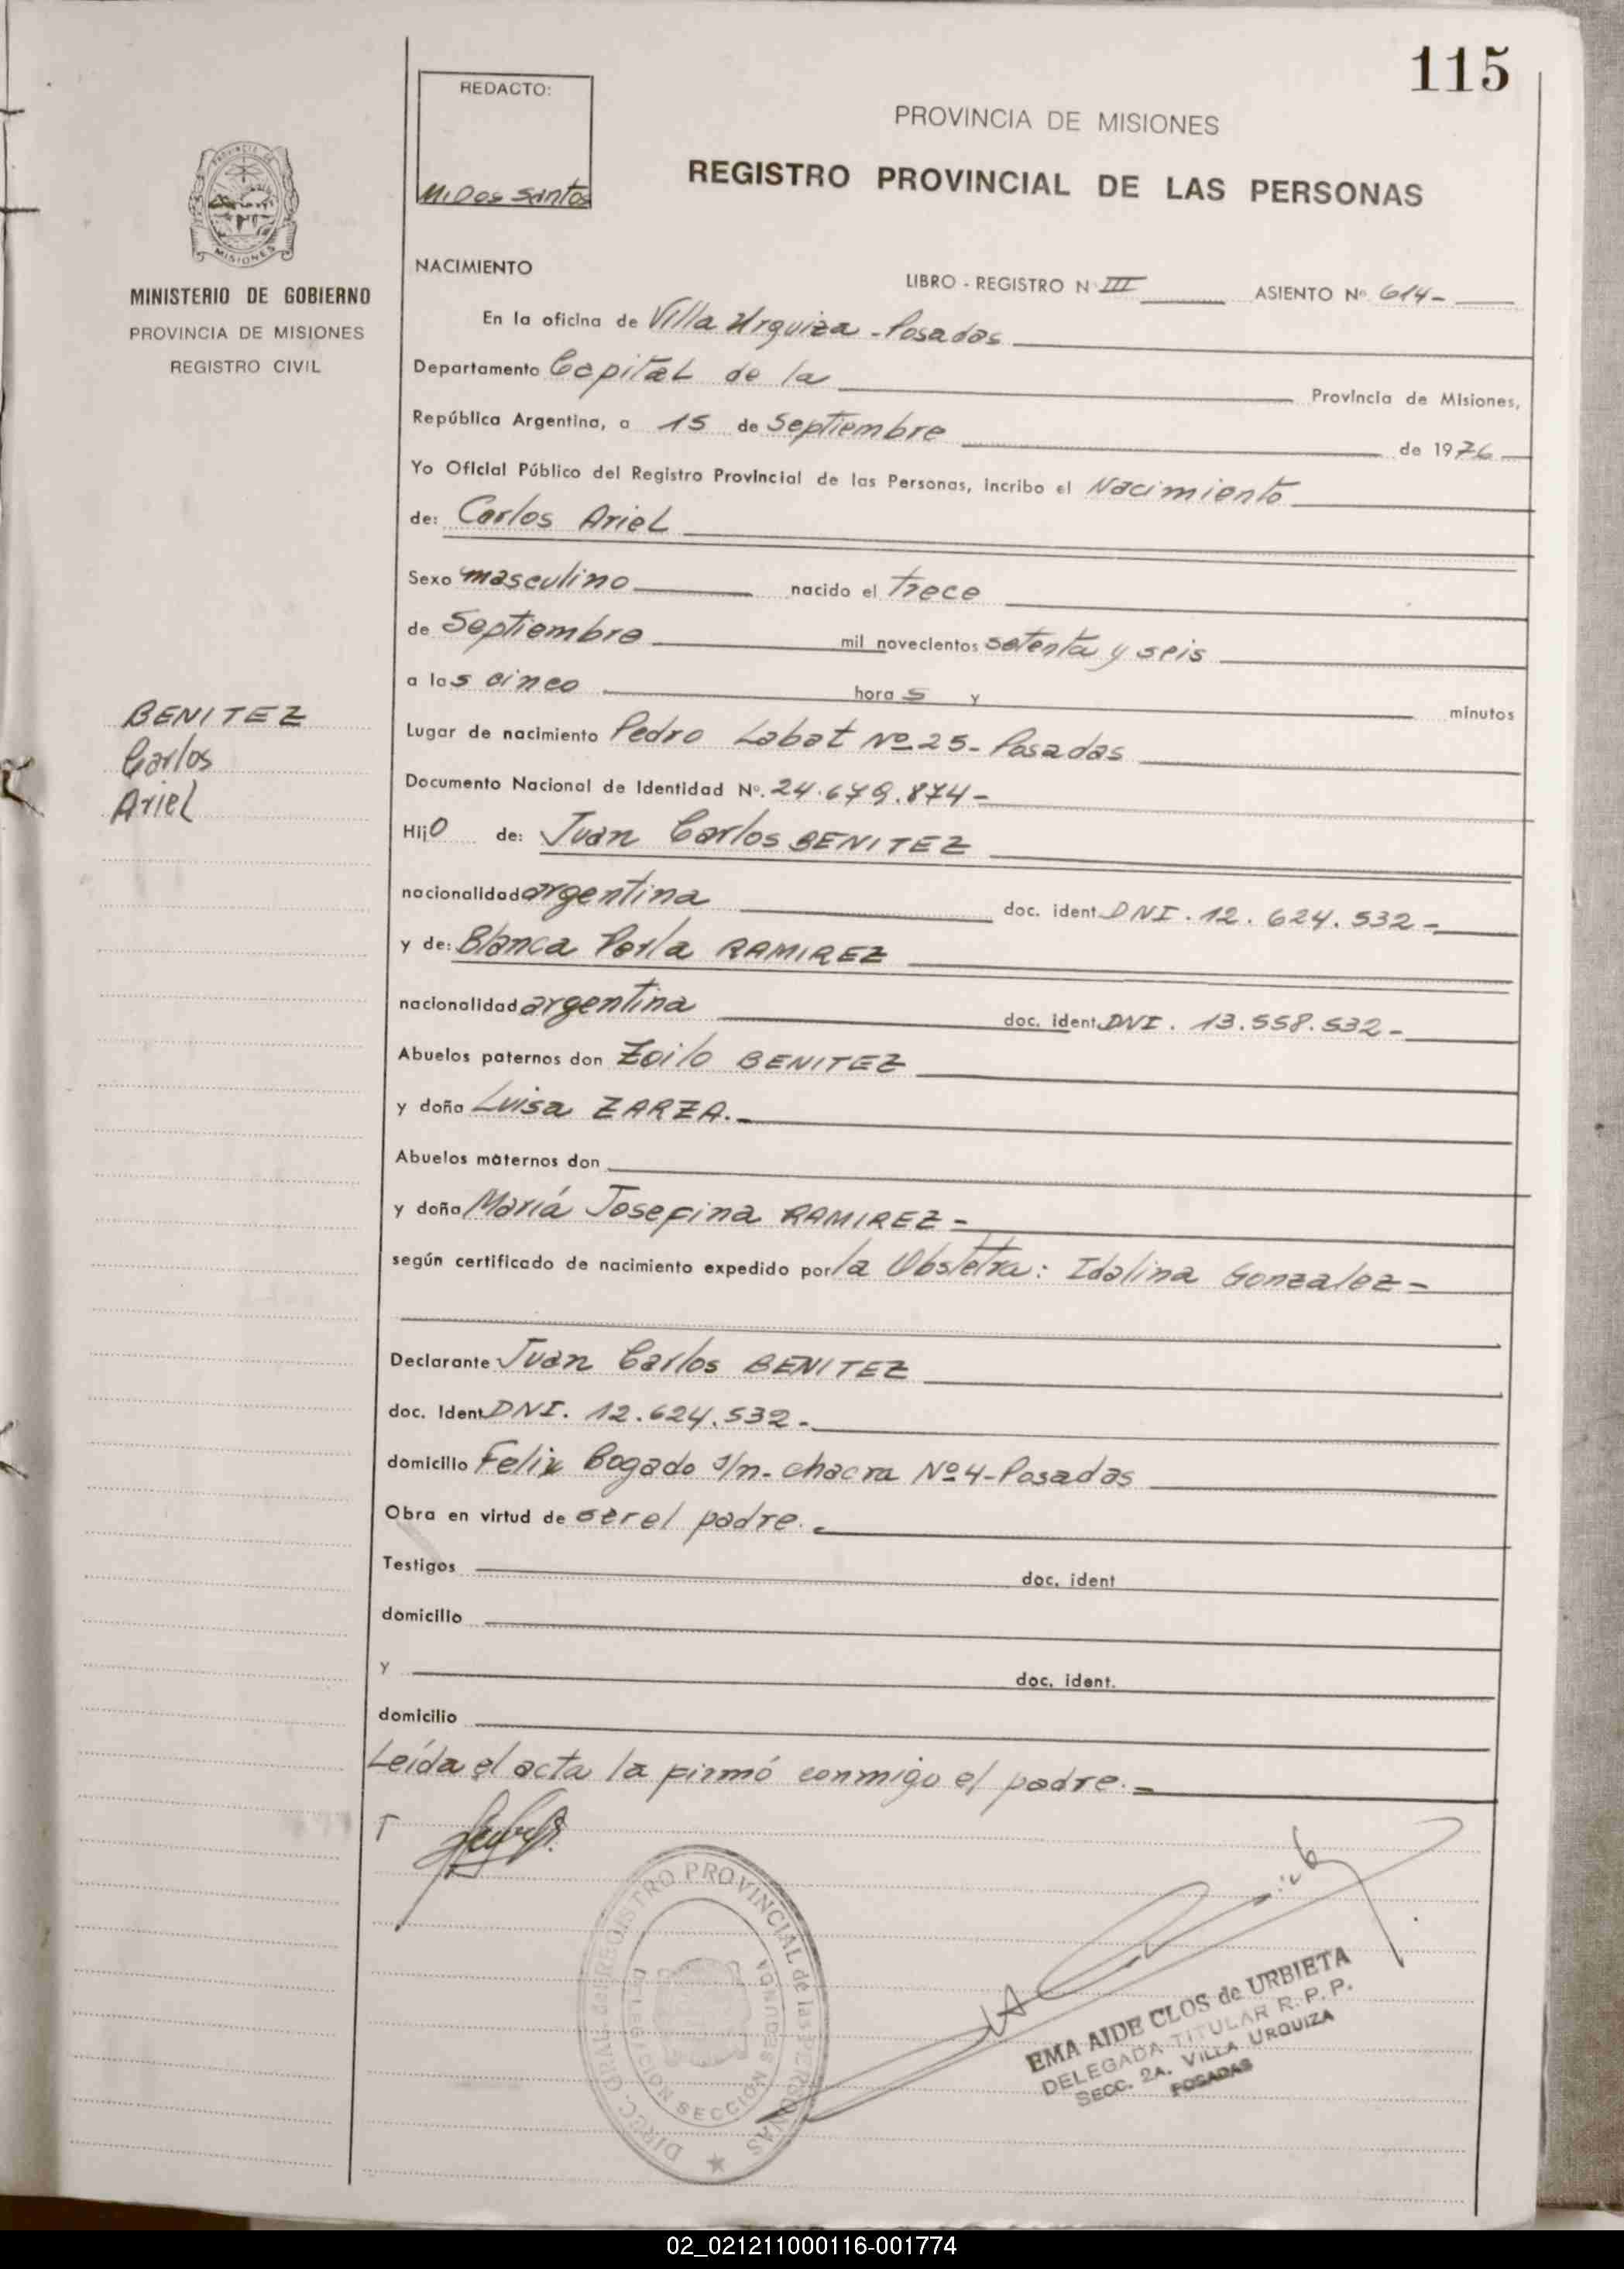 115
REDACTO:
M. Dos Santos
PROVINCIA DE MISIONES
REGISTRO PROVINCIAL DE LAS PERSONAS
PROVINCIA DE
MISIONES
MINISTERIO DE GOBIERNO
PROVINCIA DE MISIONES
REGISTRO CIVIL
NACIMIENTO
LIBRO - REGISTRO N III ASIENTO Nº 614-
En la oficina de Villa Urquiza - Posadas
Departamento Capital de la Provincia de Misiones,
República Argentina, a 15 de Septiembre de 1976
Yo Oficial Público del Registro Provincial de las Personas, incribo el Nacimiento
de: Carlos Ariel
Sexo masculino nacido el Trece
de Septiembre mil novecientos setenta y seis
a las cinco hora s y minutos
BENITEZ
Carlos
Ariel
Lugar de nacimiento Pedro Labat Nº 25- Posadas
Documento Nacional de Identidad Nº. 24.679.874-
Hijo de: Juan Carlos BENITEZ
nacionalidad argentina doc. ident. DNI. 12.624.532-
y de: Blanca Perla RAMIREZ
nacionalidad argentina doc. ident. DNI. 13.558.532-
Abuelos paternos don Zoilo BENITEZ
y doña Luisa ZARZA.
Abuelos maternos don
y doña María Josefina RAMIREZ -
según certificado de nacimiento expedido por la Obstetra: Idalina Gonzalez -
Declarante Juan Carlos BENITEZ
doc. Ident. DNI. 12.624.532-
domicilio Felix Bogado s/n- chacra Nº 4-Posadas
Obra en virtud de ser el padre.
Testigos doc. ident
domicilio
y doc. ident.
domicilio
Leída el acta la firmó conmigo el padre.-
DIREC. GRAL. del REGISTRO PROVINCIAL de las PERSONAS
DELEGACION SECCION SEGUNDA
EMA AIDE CLOS de URBIETA
DELEGADA TITULAR R. P. P.
SECC. 2A. VILLA URQUIZA
POSADAS
02_021211000116-001774